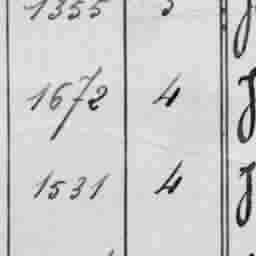 1355
1672 4
1531 4